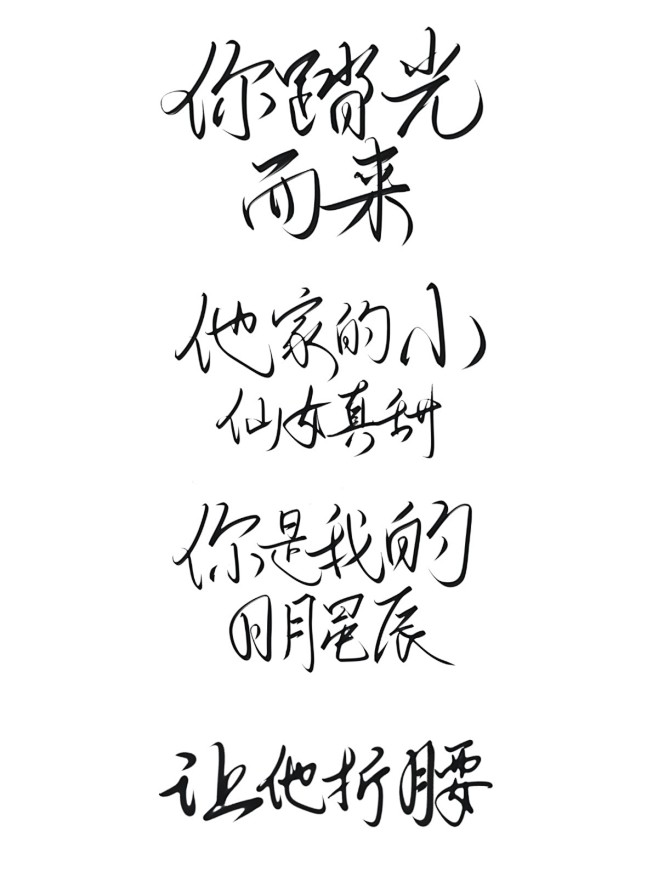 你踏光
而来
他家的小
仙女真甜
你是我的
日月星辰
让他折腰